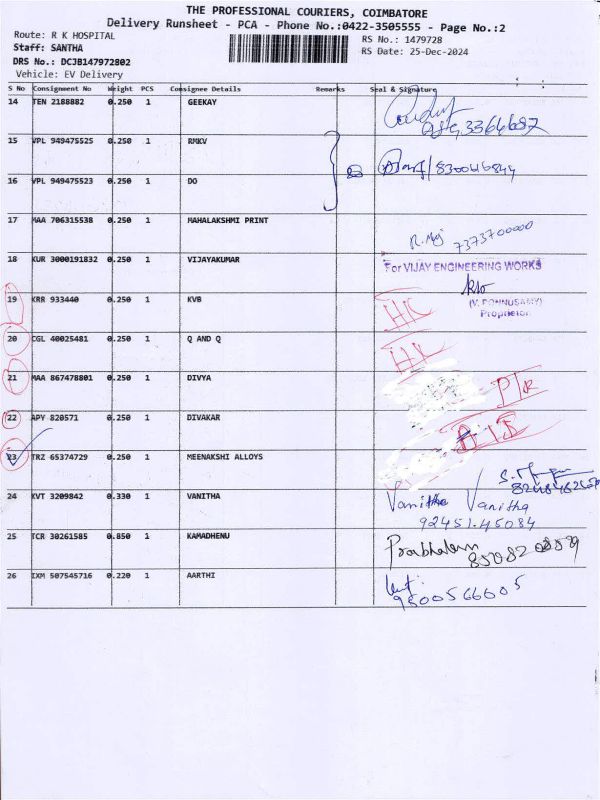 THE PROFESSIONAL COURIERS, COIMBATORE
Delivery Runsheet - PCA - Phone No.:0422-3505555 - Page No.:2
Route: R K HOSPITAL
RS No.: 1479728
Staff: SANTHA
RS Date: 25-Dec-2024
DRS No.: DCJB147972802
Vehicle: EV Delivery
S No Consignment No Weight PCS Consignee Details Remarks Seal & Signature
14 TEN 2188882 0.250 1 GEEKAY
15 VPL 949475525 0.250 1 RMKV
16 VPL 949475523 0.250 1 DO
17 MAA 706315538 0.250 1 MAHALAKSHMI PRINT
7373700000
18 KUR 3000191832 0.250 1 VIJAYAKUMAR
For VIJAY ENGINEERING WORKS
(V. PONNUSAMY)
Proprietor
19 KRR 933440 0.250 1 KVB
20 CGL 40025481 0.250 1 Q AND Q
21 MAA 867478801 0.250 1 DIVYA
22 APY 820571 0.250 1 DIVAKAR
23 TRZ 65374729 0.250 1 MEENAKSHI ALLOYS
24 KVT 3209842 0.330 1 VANITHA
Vanitha Vanitha
92451-45084
25 TCR 30261585 0.850 1 KAMADHENU
26 IXM 507545716 0.220 1 AARTHI
9500566605